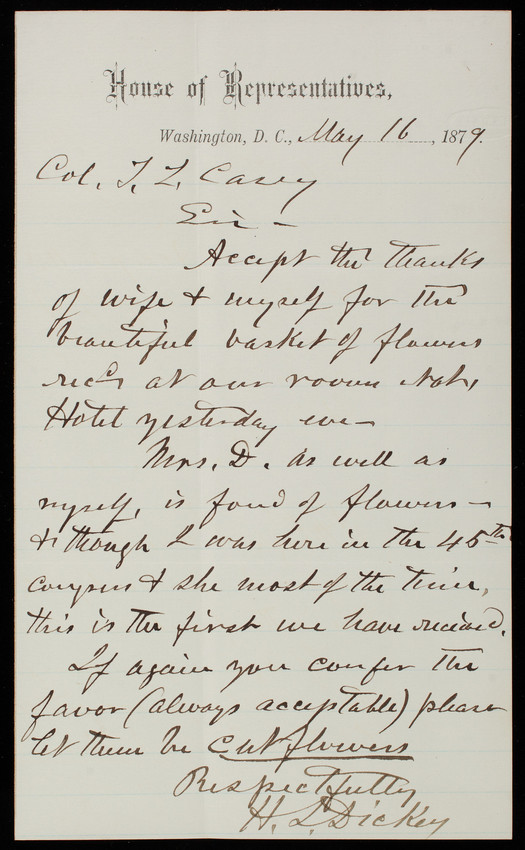 House of Representatives,
Washington, D. C., May 16, 1879.
Col. T. L. Casey
Sir -
Accept the thanks
of wife & myself for the
beautiful basket of flowers
recd at our room Natl
Hotel yesterday eve-
Mrs. D. as well as
myself, is fond of flowers -
& though I was here in the 45th
congress & she most of the time,
this is the first we have received.
If again you confer the
favor (always acceptable) please
let them be cut flowers
Respectfully
H. L. Dickey